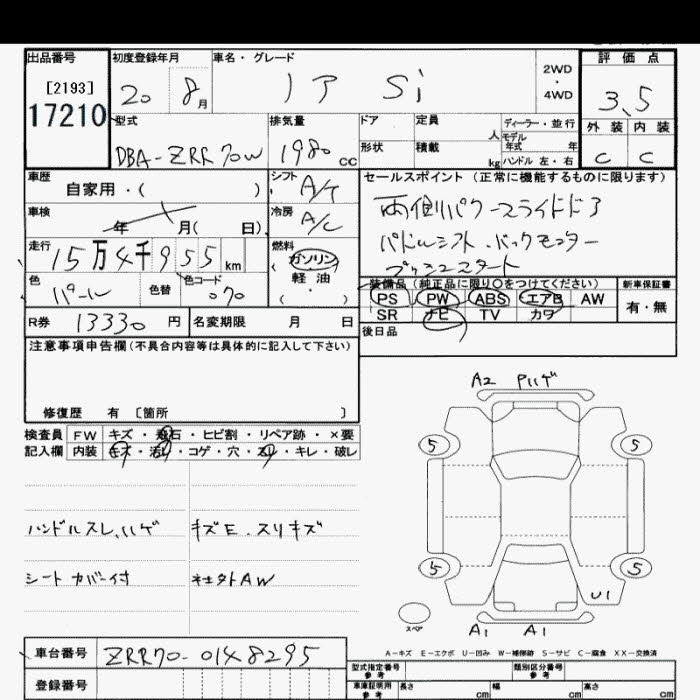 出品番号 初度登録年月 車名・グレード 2WD・4WD 評価点
[2193]
17210 20 8月 ノア Si 3.5
型式 排気量 ドア 定員 人 ディーラー・並行 外装 内装
形状 積載 kg モデル年式 年 ハンドル 左・右
DBA-ZRR70W 1980cc C C
車歴 自家用・( ) シフト A/T セールスポイント (正常に機能するものに限ります)
車検 年 月( 日). 冷房 A/C 両側パワースライドドア
走行 15万4千955km 燃料 ガソリン 軽油 ( ・ ) パドルシフト.バックモニター
プッシュスタート
色 パール 色替 色コード 070 装備品 (純正品に限り○をつけてください) 新車保証書
PS PW ABS エアB AW 有・無
SR ナビ TV カワ
R券 13330円 名変期限 月 日 後日品
注意事項申告欄(不具合内容等は具体的に記入して下さい)
修復歴 有 〔箇所 〕
検査員 FW キズ・飛石・ヒビ割・リペア跡・×要
記入欄 内装 キズ・汚れ・コゲ・穴・スレ・キレ・破レ
A2 Pハゲ
5 5
ハンドルスレ、ハゲ キズE.スリキズ
シートカバー付 社外AW
5 5
U1
スペア A1 A1
A-キズ E-エクボ U-凹み W-補修跡 S-サビ C-腐食 XX-交換済
車台番号 ZRR70-0148295
型式指定番号 参考 類別区分番号 参考
登録番号 車庫証明用 参考 長さ cm 幅 cm 高さ cm